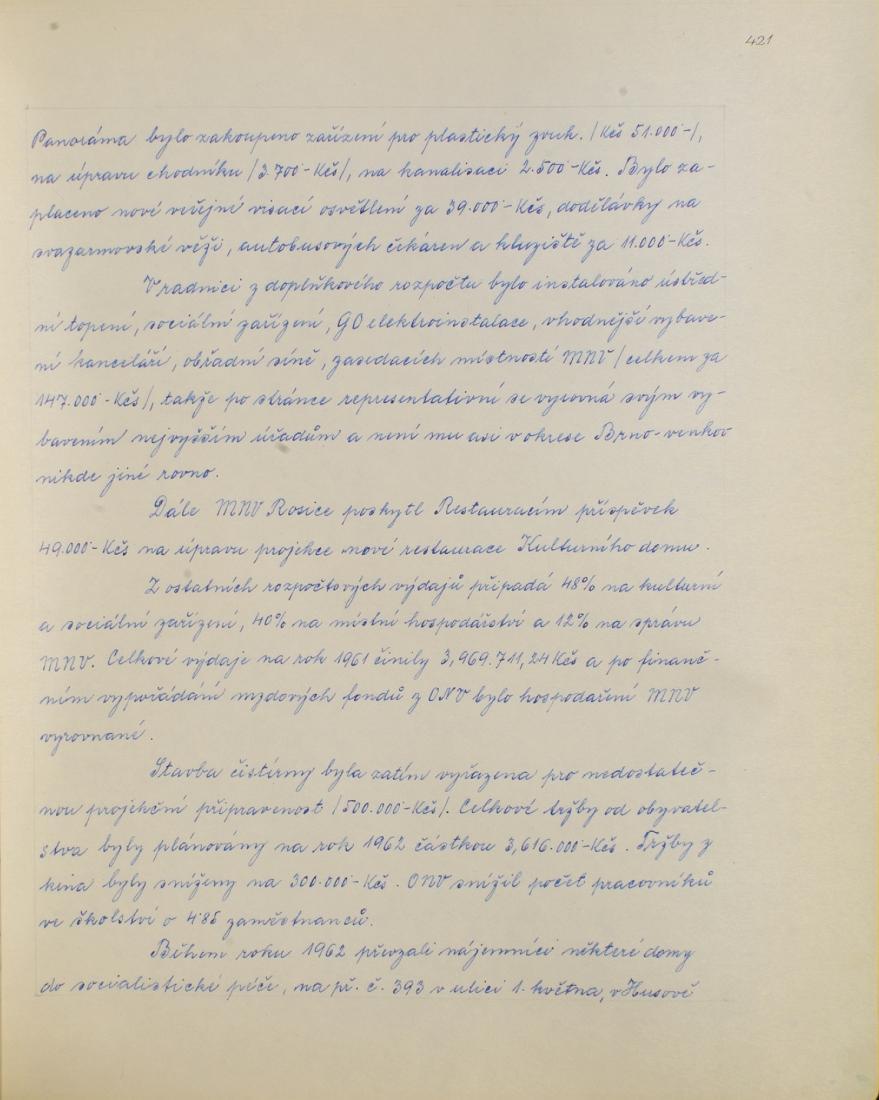 421
Panoráma bylo zakoupeno zařízení pro plastický zvuk. /Kčs 51.000-/,
na úpravu chodníku /3.700-Kčs/, na kanalisaci 2.500-Kčs. Bylo za-
placeno nové veřejné visací osvětlení za 39.000-Kčs, dodělávky na
svazarmovské věži, autobusových čekáren a kluziště za 11.000-Kčs.
V radnici z doplňkového rozpočtu bylo instalováno ústřed-
ní topení, sociální zařízení, GO elektroinstalace, vhodnější vybave-
ní kanceláří, obřadní síně, zasedacích místností MNV /celkem za
147.000-Kčs/, takže po stránce representativní se vyrovná svým vy-
bavením nejvyšším úřadům a není mu asi v okrese Brno-venkov
nikde jiné rovno.
Dále MNV Rosice poskytl Restauracím příspěvek
49.000-Kčs na úpravu projekce nové restaurace Kulturního domu.
Z ostatních rozpočtových výdajů připadá 48% na kulturní
a sociální zařízení, 40% na místní hospodářství a 12% na správu
MNV. Celkové výdaje na rok 1961 činily 3,969.711,24 Kčs a po finanč-
ním vypořádání mzdových fondů z ONV bylo hospodaření MNV
vyrovnané.
Stavba čistírny byla zatím vyřazena pro nedostateč-
nou projekční připravenost /500.000-Kčs/. Celkové tržby od obyvatel-
stva byly plánovány na rok 1962 částkou 3,616.000-Kčs. Tržby z
kina byly sníženy na 300.000-Kčs. ONV snížil počet pracovníků
ve školství o 4.85 zaměstnanců.
Během roku 1962 převzali nájemníci některé domy
do socialistické péče, na př. č. 393 v ulici 1. května, v Husově